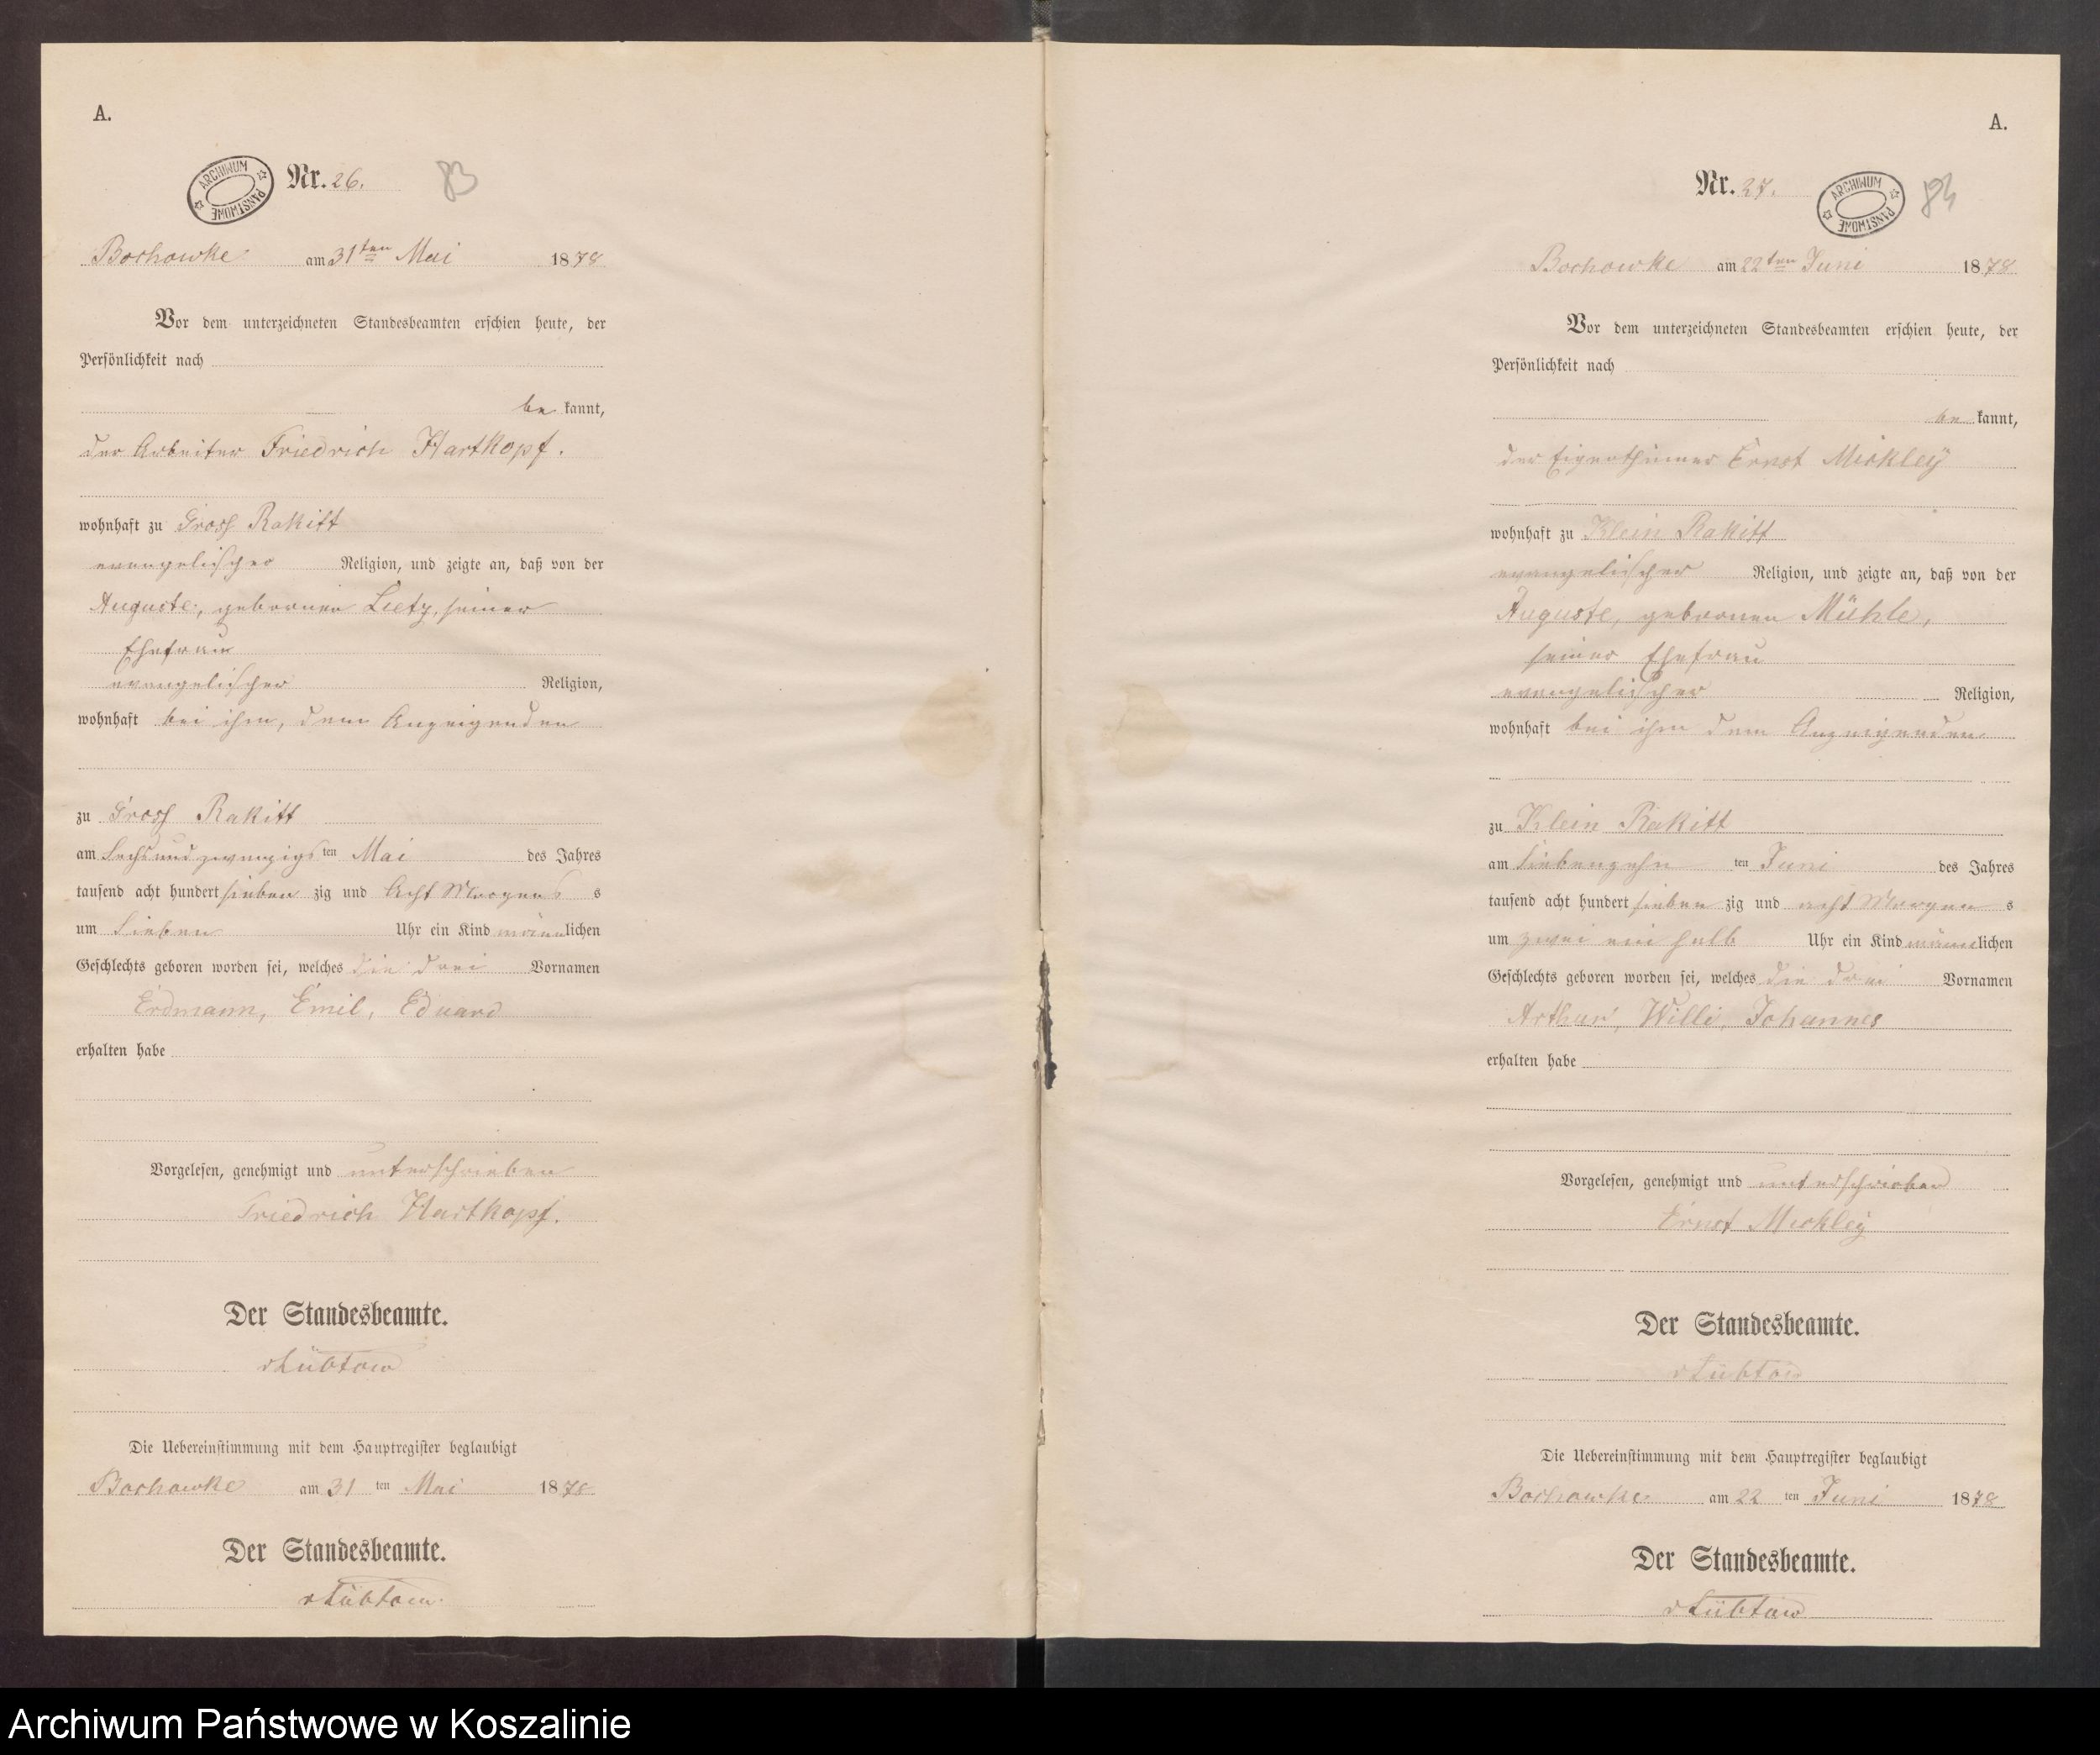 A.
ARCHIWUM PAŃSTWOWE
Nr. 26. 83
Borkowke am 31ten Mai 1878
Vor dem unterzeichneten Standesbeamten erschien heute, der
Persönlichkeit nach
be kannt,
der Arbeiter Friedrich Hartkopf.
wohnhaft zu Gross Rakitt
evangelischer Religion, und zeigte an, daß von der
Auguste, gebornen Lietz, seiner
Ehefrau
evangelischer Religion,
wohnhaft bei ihm, dem Anzeigenden
zu Gross Rakitt
am Sechs und zwanzigs ten Mai des Jahres
tausend acht hundert sieben zig und Acht Morgens s
um Sieben Uhr ein Kind männlichen
Geschlechts geboren worden sei, welches die drei Vornamen
Erdmann, Emil, Eduard
erhalten habe
Vorgelesen, genehmigt und unterschrieben
Friedrich Hartkopf.
Der Standesbeamte.
vLübtow
Die Uebereinstimmung mit dem Hauptregister beglaubigt
Borkowke am 31 ten Mai 1878
Der Standesbeamte.
vLübtow.
A.
Nr. 27. ARCHIWUM PAŃSTWOWE 84
Borkowke am 22ten Juni 1878
Vor dem unterzeichneten Standesbeamten erschien heute, der
Persönlichkeit nach
be kannt,
der Eigenthümer Ernst Mickley
wohnhaft zu Klein Rakitt
evangelischer Religion, und zeigte an, daß von der
Auguste, gebornen Mühle,
seiner Ehefrau
evangelischer Religion,
wohnhaft bei ihm dem Anzeigenden
zu Klein Rakitt
am Siebenzehn ten Juni des Jahres
tausend acht hundert sieben zig und acht Morgen s
um zwei ein halb Uhr ein Kind männlichen
Geschlechts geboren worden sei, welches die drei Vornamen
Arthur, Willi, Johannes
erhalten habe
Vorgelesen, genehmigt und unterschrieben
Ernst Mickley
Der Standesbeamte.
vLübtow
Die Uebereinstimmung mit dem Hauptregister beglaubigt
Borkowke am 22 ten Juni 1878
Der Standesbeamte.
vLübtow
Archiwum Państwowe w Koszalinie